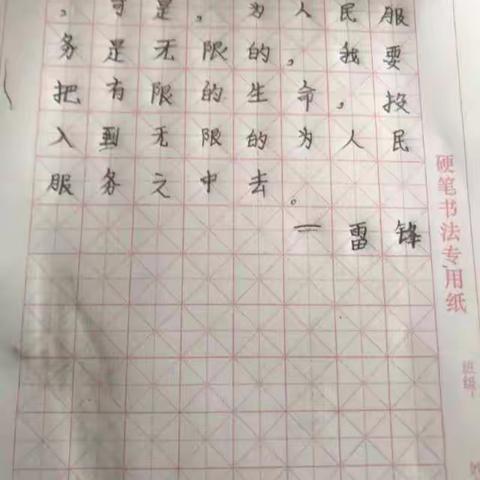 ，可是，为人民服
务是无限的，我要
把有限的生命，投
入到无限的为人民
服务之中去。
一雷锋
硬笔书法专用纸
班级